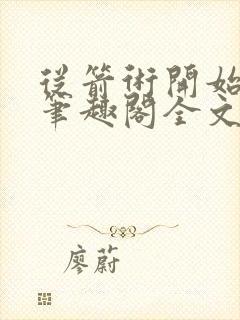 從箭術開始
筆趣閣全文
廖蔚